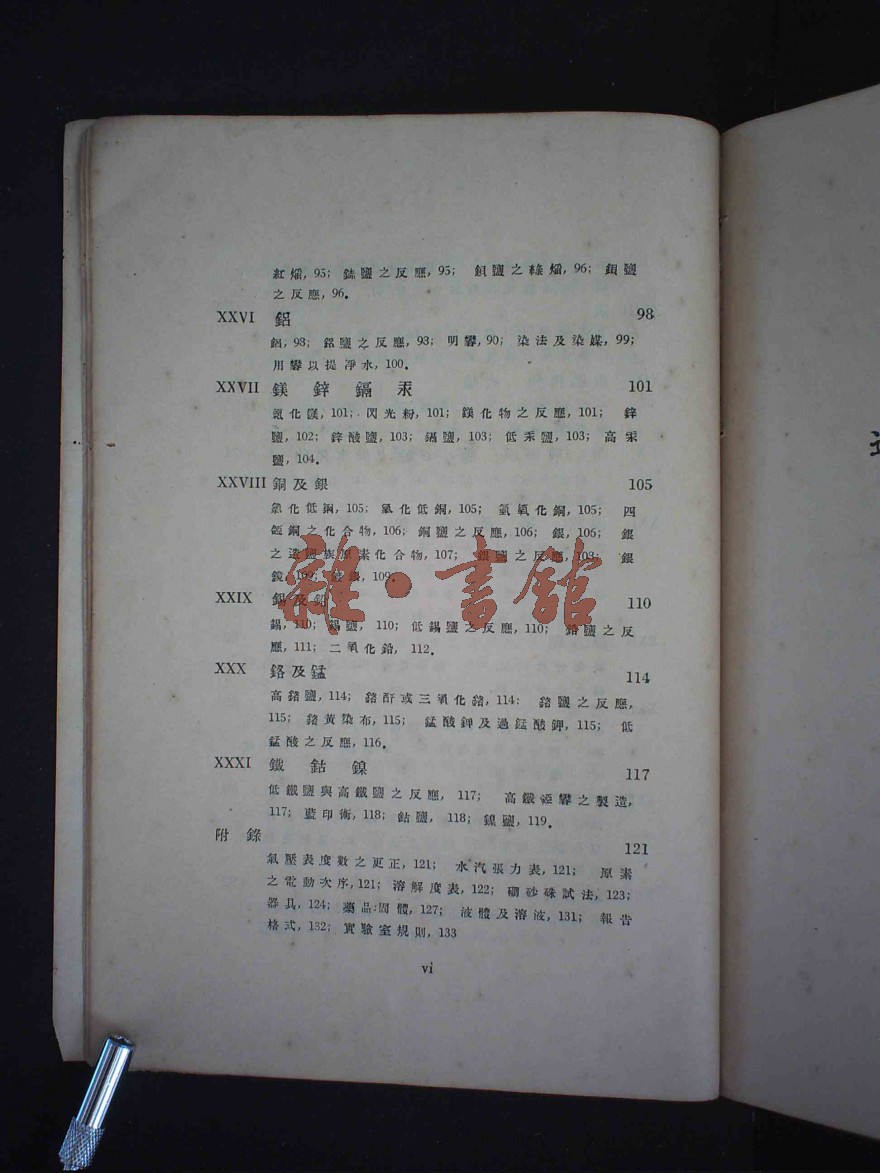 紅燄, 95; 鍶鹽之反應, 95; 鋇鹽之綠燄, 96; 鋇鹽
之反應, 96.
XXVI 鋁 98
鋁, 98; 鋁鹽之反應, 98; 明礬, 90; 染法及染媒, 99;
用礬以提凈水, 100.
XXVII 鎂 鋅 鎘 汞 101
氮化鎂, 101; 閃光粉, 101; 鎂化物之反應, 101; 鋅
鹽, 102; 鋅酸鹽, 103; 鎘鹽, 103; 低汞鹽, 103; 高汞
鹽, 104.
XXVIII 銅及銀 105
化低銅, 105; 氧化低銅, 105; 氫氧化銅, 105; 四
銅之化合物, 106; 銅鹽之反應, 106; 銀, 106; 銀
之造鹽族原素化合物, 107; 銀鹽之反應, 103; 銀
鏡, 109; 銀, 109.
XXIX 錫及鉛 110
錫, 110; 錫鹽, 110; 低錫鹽之反應, 110; 鉛鹽之反
應, 111; 二氧化鉛, 112.
XXX 鉻及錳 114
高鉻鹽, 114; 鉻酐或三氧化鉻, 114; 鉻鹽之反應,
115; 鉻黃染布, 115; 錳酸鉀及過錳酸鉀, 115; 低
錳酸之反應, 116.
XXXI 鐵 鈷 鎳 117
低鐵鹽與高鐵鹽之反應, 117; 高鐵礬之製造,
117; 藍印術, 118; 鈷鹽, 118; 鎳鹽, 119.
附 錄 121
氣壓表度數之更正, 121; 水汽張力表, 121; 原素
之電動次序, 121; 溶解度表, 122; 硼砂珠試法, 123;
器具, 124; 藥品:固體, 127; 液體及溶液, 131; 報告
格式, 132; 實驗室規則, 133
vi
雜·書館